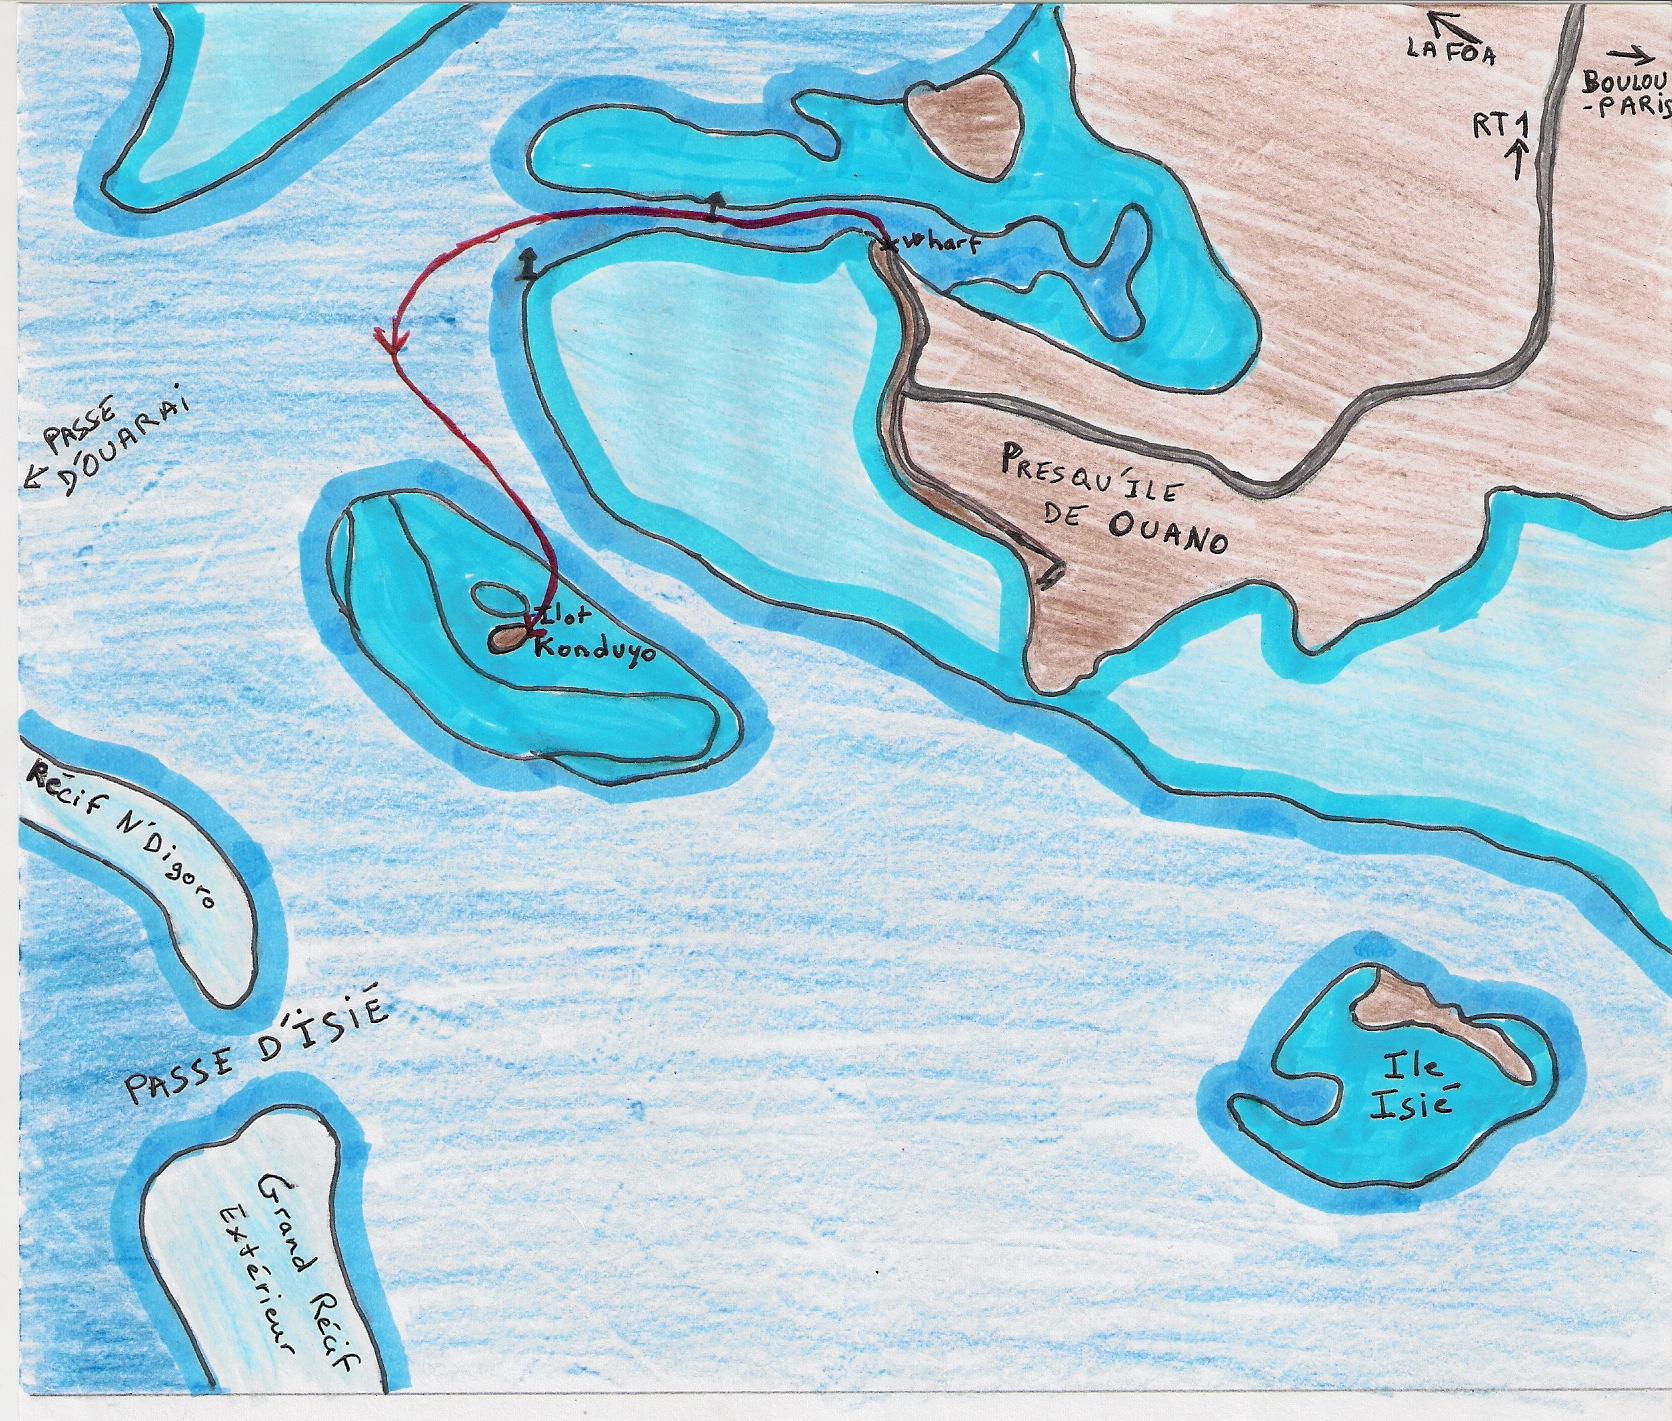 LA FOA
BOULOU
-PARIS
RT1
Wharf
PASSE
D'OUARAI
PRESQU'ILE
DE OUANO
Ilot
Konduyo
Récif N'Digoro
PASSE D'ISIÉ
Ile
Isié
Grand Récif
Extérieur